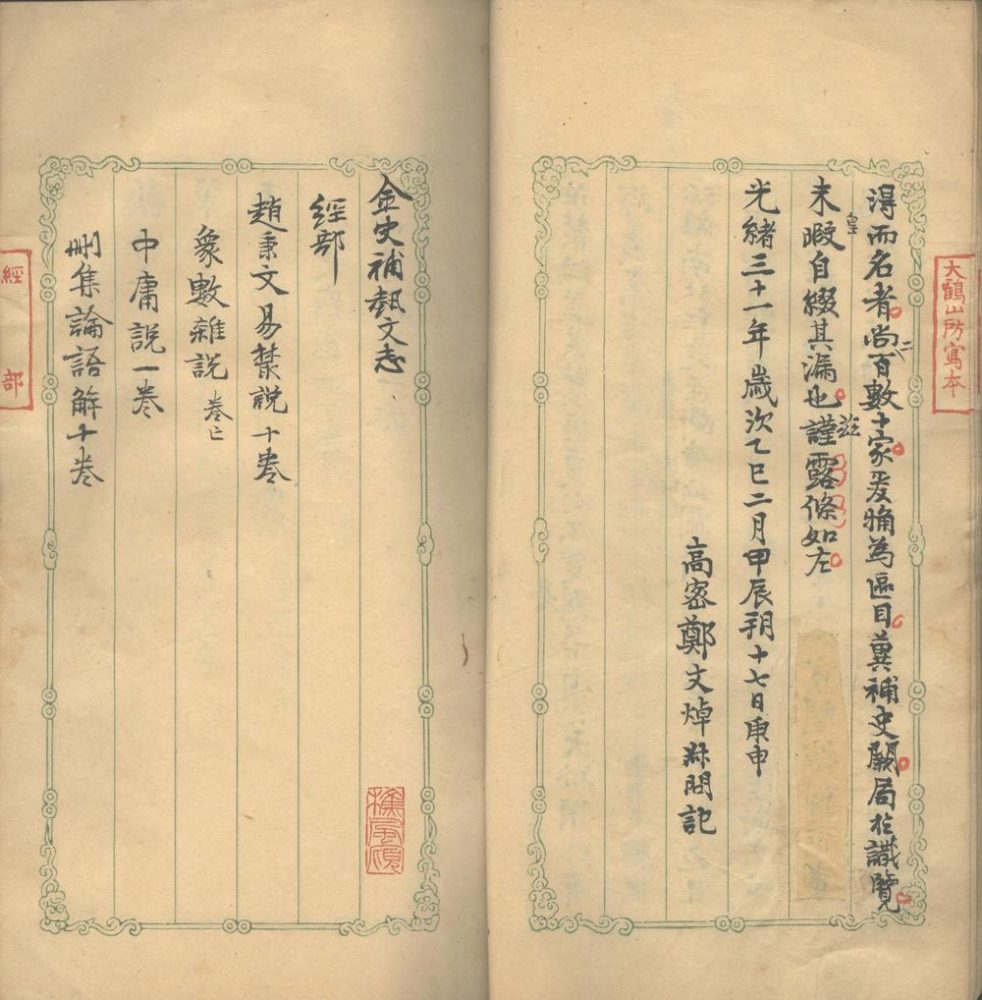 大鶴山房寫本
得而名者尚百數十家爰㨂為區目冀補史闕局於識覽
二
未暇自綴其漏也謹露條如左
皇
茲
光緒三十一年歲次乙巳二月甲辰朔十七日庚申
高密鄭文焯叔問記
金史補藝文志
經部
趙秉文易叢説十卷
象數雜説 卷亡
中庸説一卷
刪集論語解十卷
樵風
經部